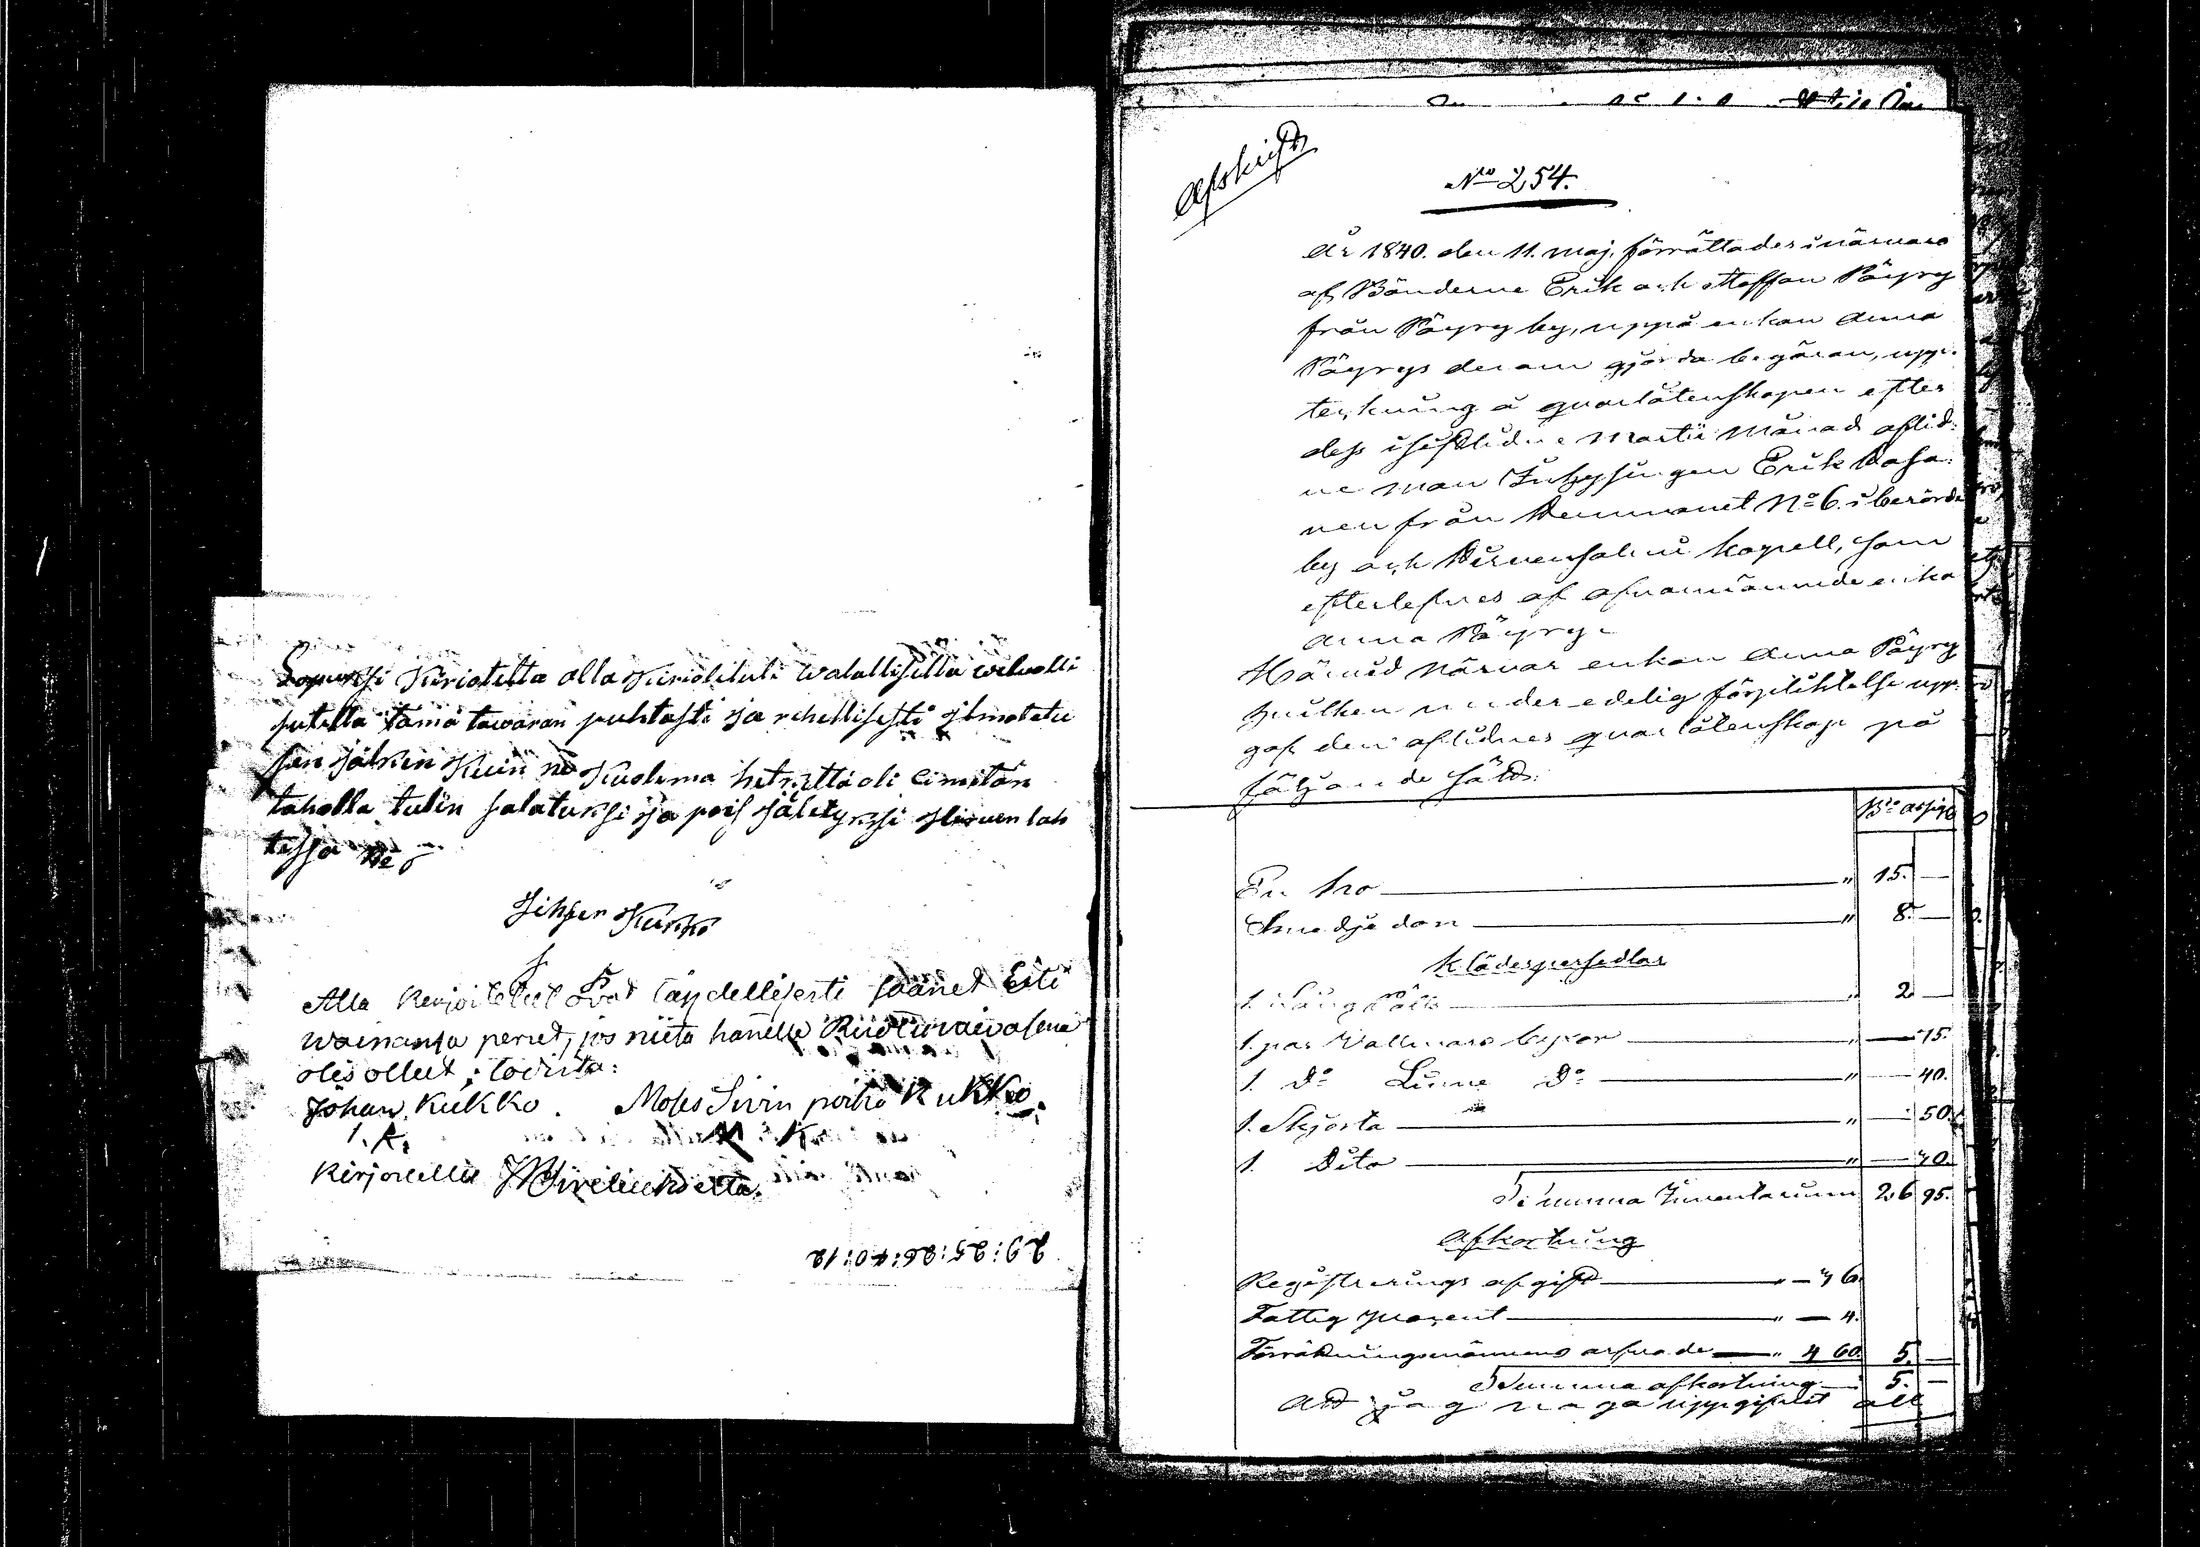 Lopuksi Kirioitetta alla Kirioitetuli walallisella welwolli
sutella tämä tawaran puhtasti ja rehellisesti ilmotetu
sen jälken Kuin ne Kuolema hetkellä oli eimitän
taholla tulin salatuksi ja pois jätetyxsi Hirven lah
tessa

Kukko
Alla Kerjoitetut Ovat täydellisesti saanet Eiti
wainansa perut, jos niita hanelle
olis ollut, todista:
Johan Kukko. Moses Sivin poika Kukko.
I. K. M K
Kirjoittellu
29:25:26:40:12
Afskrift
No 254.
År 1840. den 11. maj, förrättades i närvaro
af Bönderne Erik och Staffan Pöyry
från Pöyry by, uppå enkan Anna
Pöyrys derom gjorda begäran, upp-
teckning å qvarlåtenskapen efter
dess sistlidne Martii Månad aflid-
ne man Inhysingen Erik
nen från Hemmanet No 6. i berörde
by och Kapell, som
efterlefves af ofvannämnde enka
Anna Pöyry.
Härvid närvar enkan Anna Pöyry
hvilken under edelig förpliktelse upp-
gaf den aflidnes qvarlåtenskap på
följande sätt:
Bco assign
En ko " 15. —
Smedjedon " 8. —
Klädespersedlar
1. Lång rock " 2 —
1. par Vallmars byxor " — 75.
1. Do Linne Do " — 40.
1. Skjorta " — 50.
1. Dito " — 70.
Summa Inventarium 26 95.
Afkortning
Registrerings afgift " — 76.
Fattig procent " — 4.
arfvode " 4 60. 5. —
Summa afkortning 5. —
Att jag noga uppgifvit allt